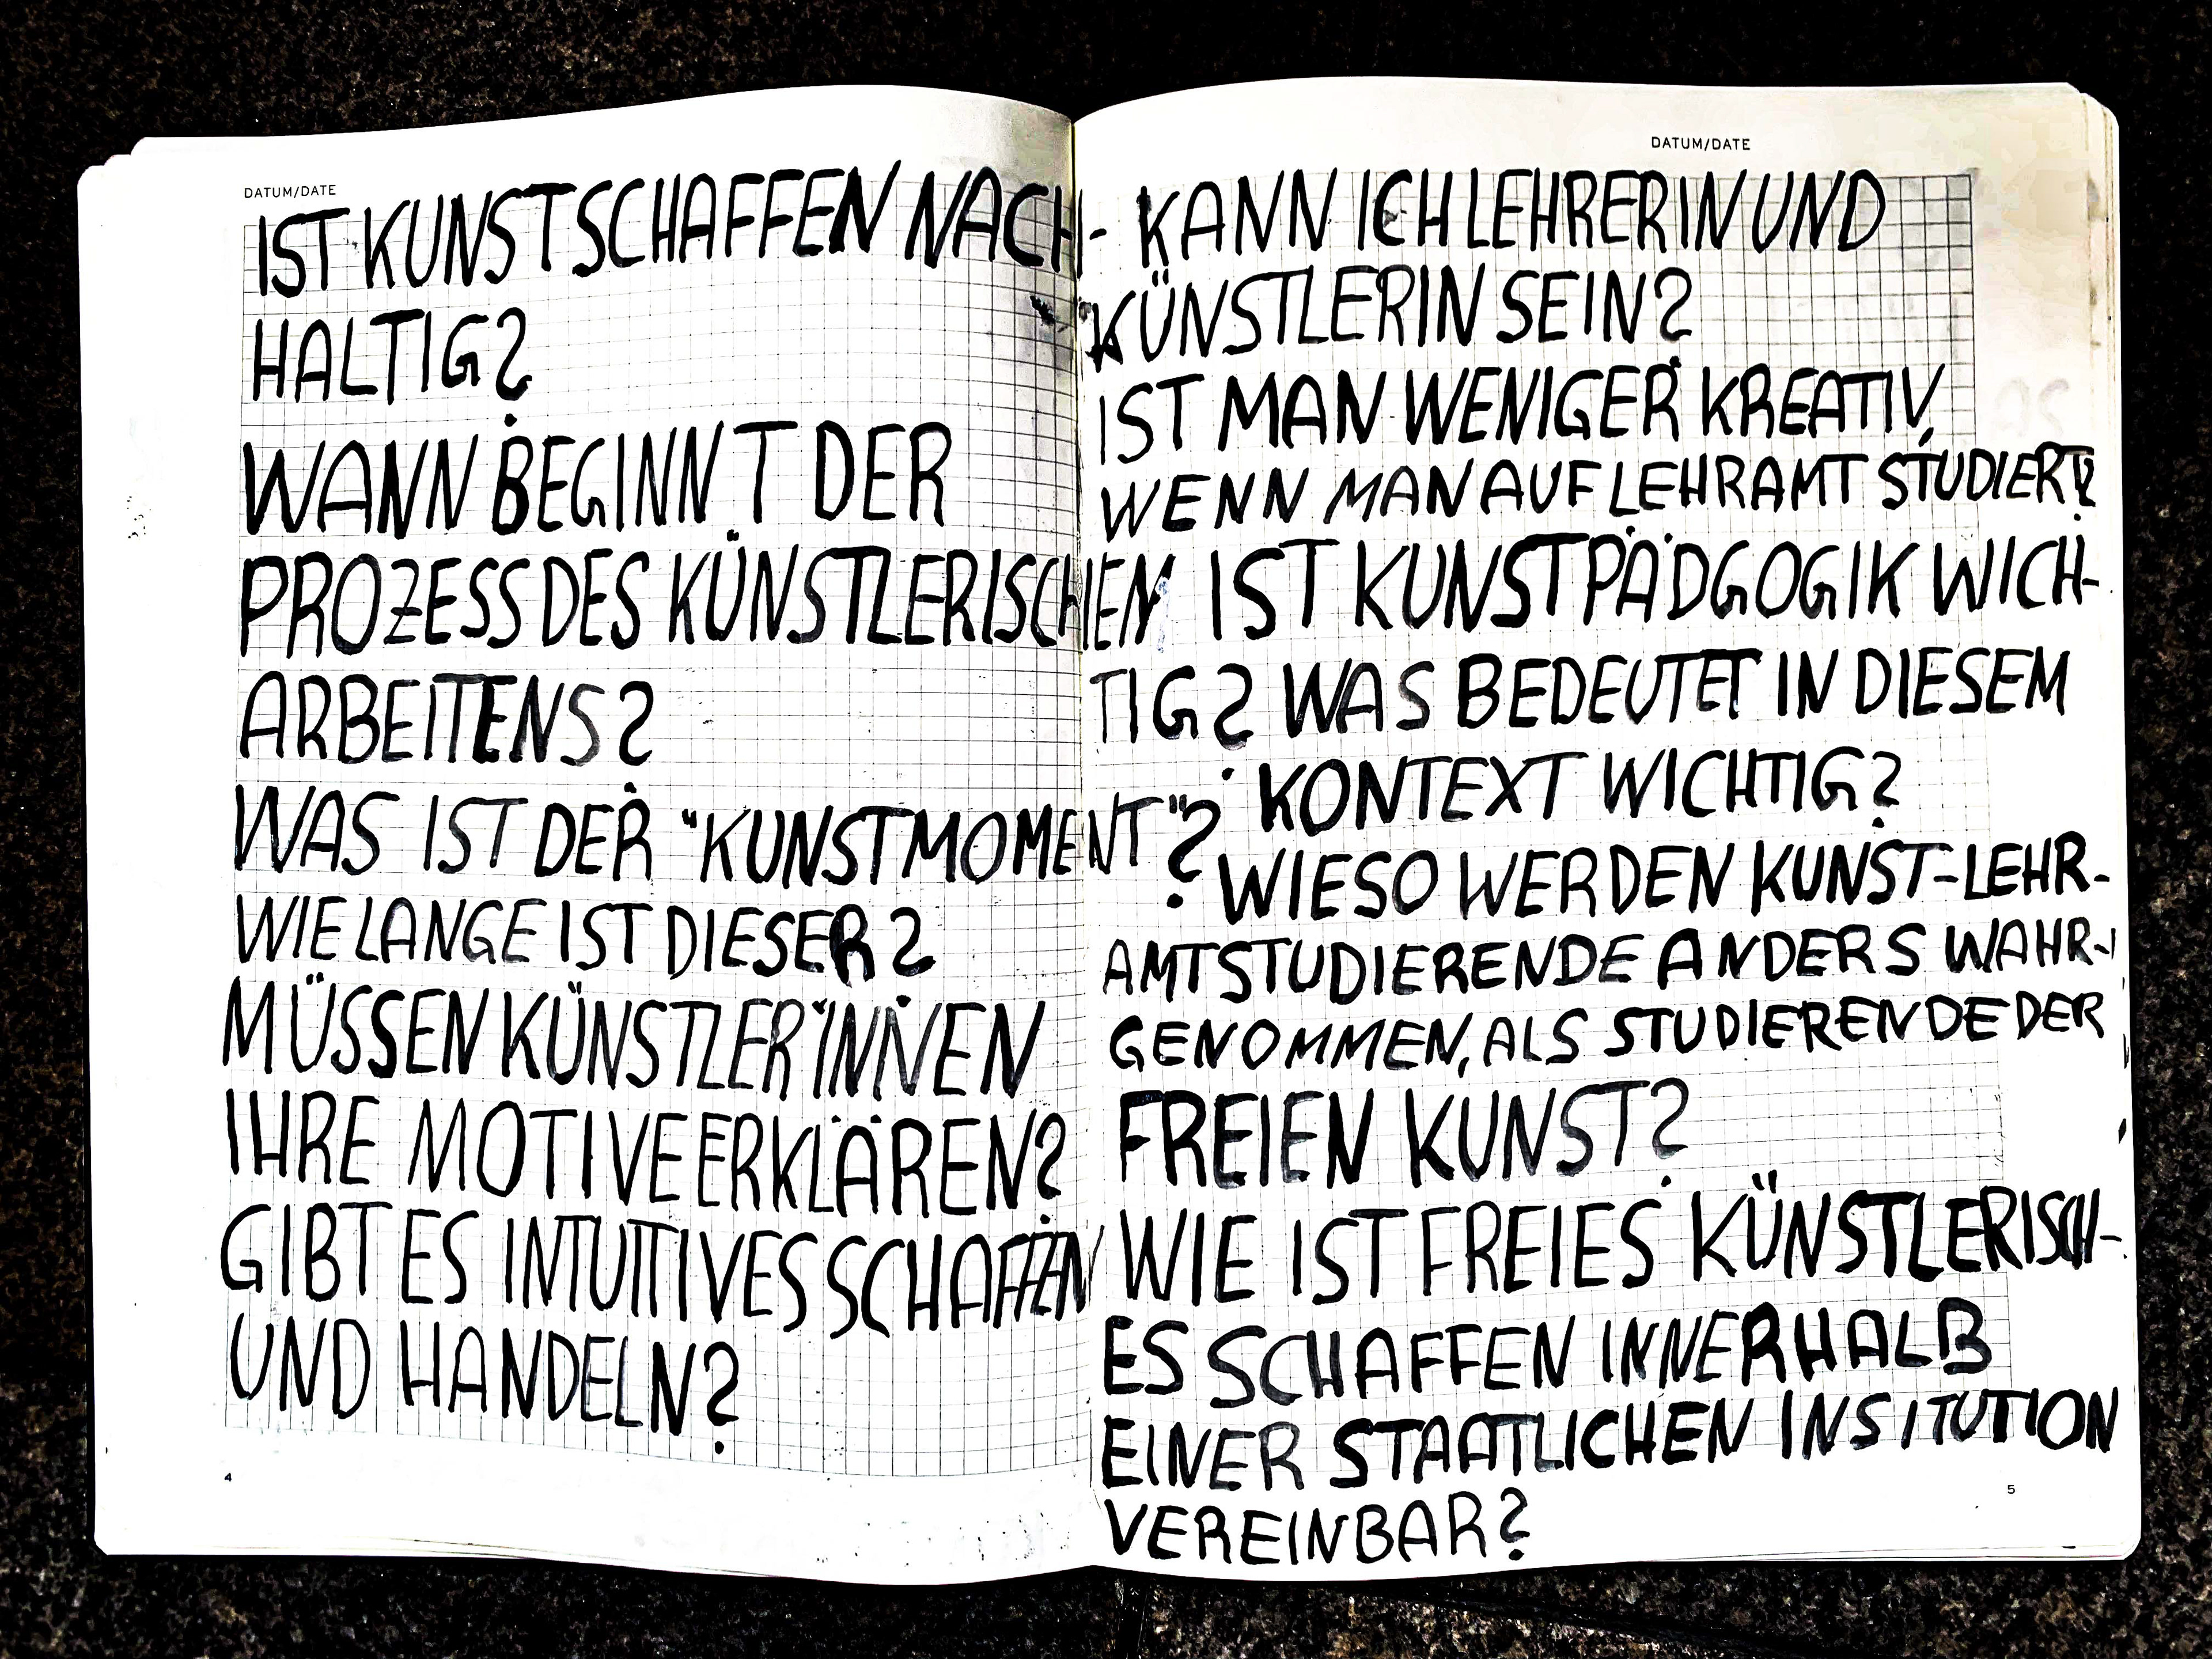 DATUM/DATE
IST KUNSTSCHAFFEN NACH-
HALTIG?
WANN BEGINNT DER
PROZESS DES KÜNSTLERISCHEN
ARBEITENS?
WAS IST DER "KUNSTMOMENT"?
WIE LANGE IST DIESER?
MÜSSEN KÜNSTLER*INNEN
IHRE MOTIVE ERKLÄREN?
GIBT ES INTUITIVES SCHAFFEN
UND HANDELN?
4
DATUM/DATE
KANN ICH LEHRERIN UND
KÜNSTLERIN SEIN?
IST MAN WENIGER KREATIV,
WENN MAN AUF LEHRAMT STUDIERT?
IST KUNSTPÄDGOGIK WICH-
TIG? WAS BEDEUTET IN DIESEM
KONTEXT WICHTIG?
WIESO WERDEN KUNST-LEHR-
AMTSTUDIERENDE ANDERS WAHR-
GENOMMEN, ALS STUDIERENDE DER
FREIEN KUNST?
WIE IST FREIES KÜNSTLERISCH-
ES SCHAFFEN INNERHALB
EINER STAATLICHEN INSITUTION
VEREINBAR?
5